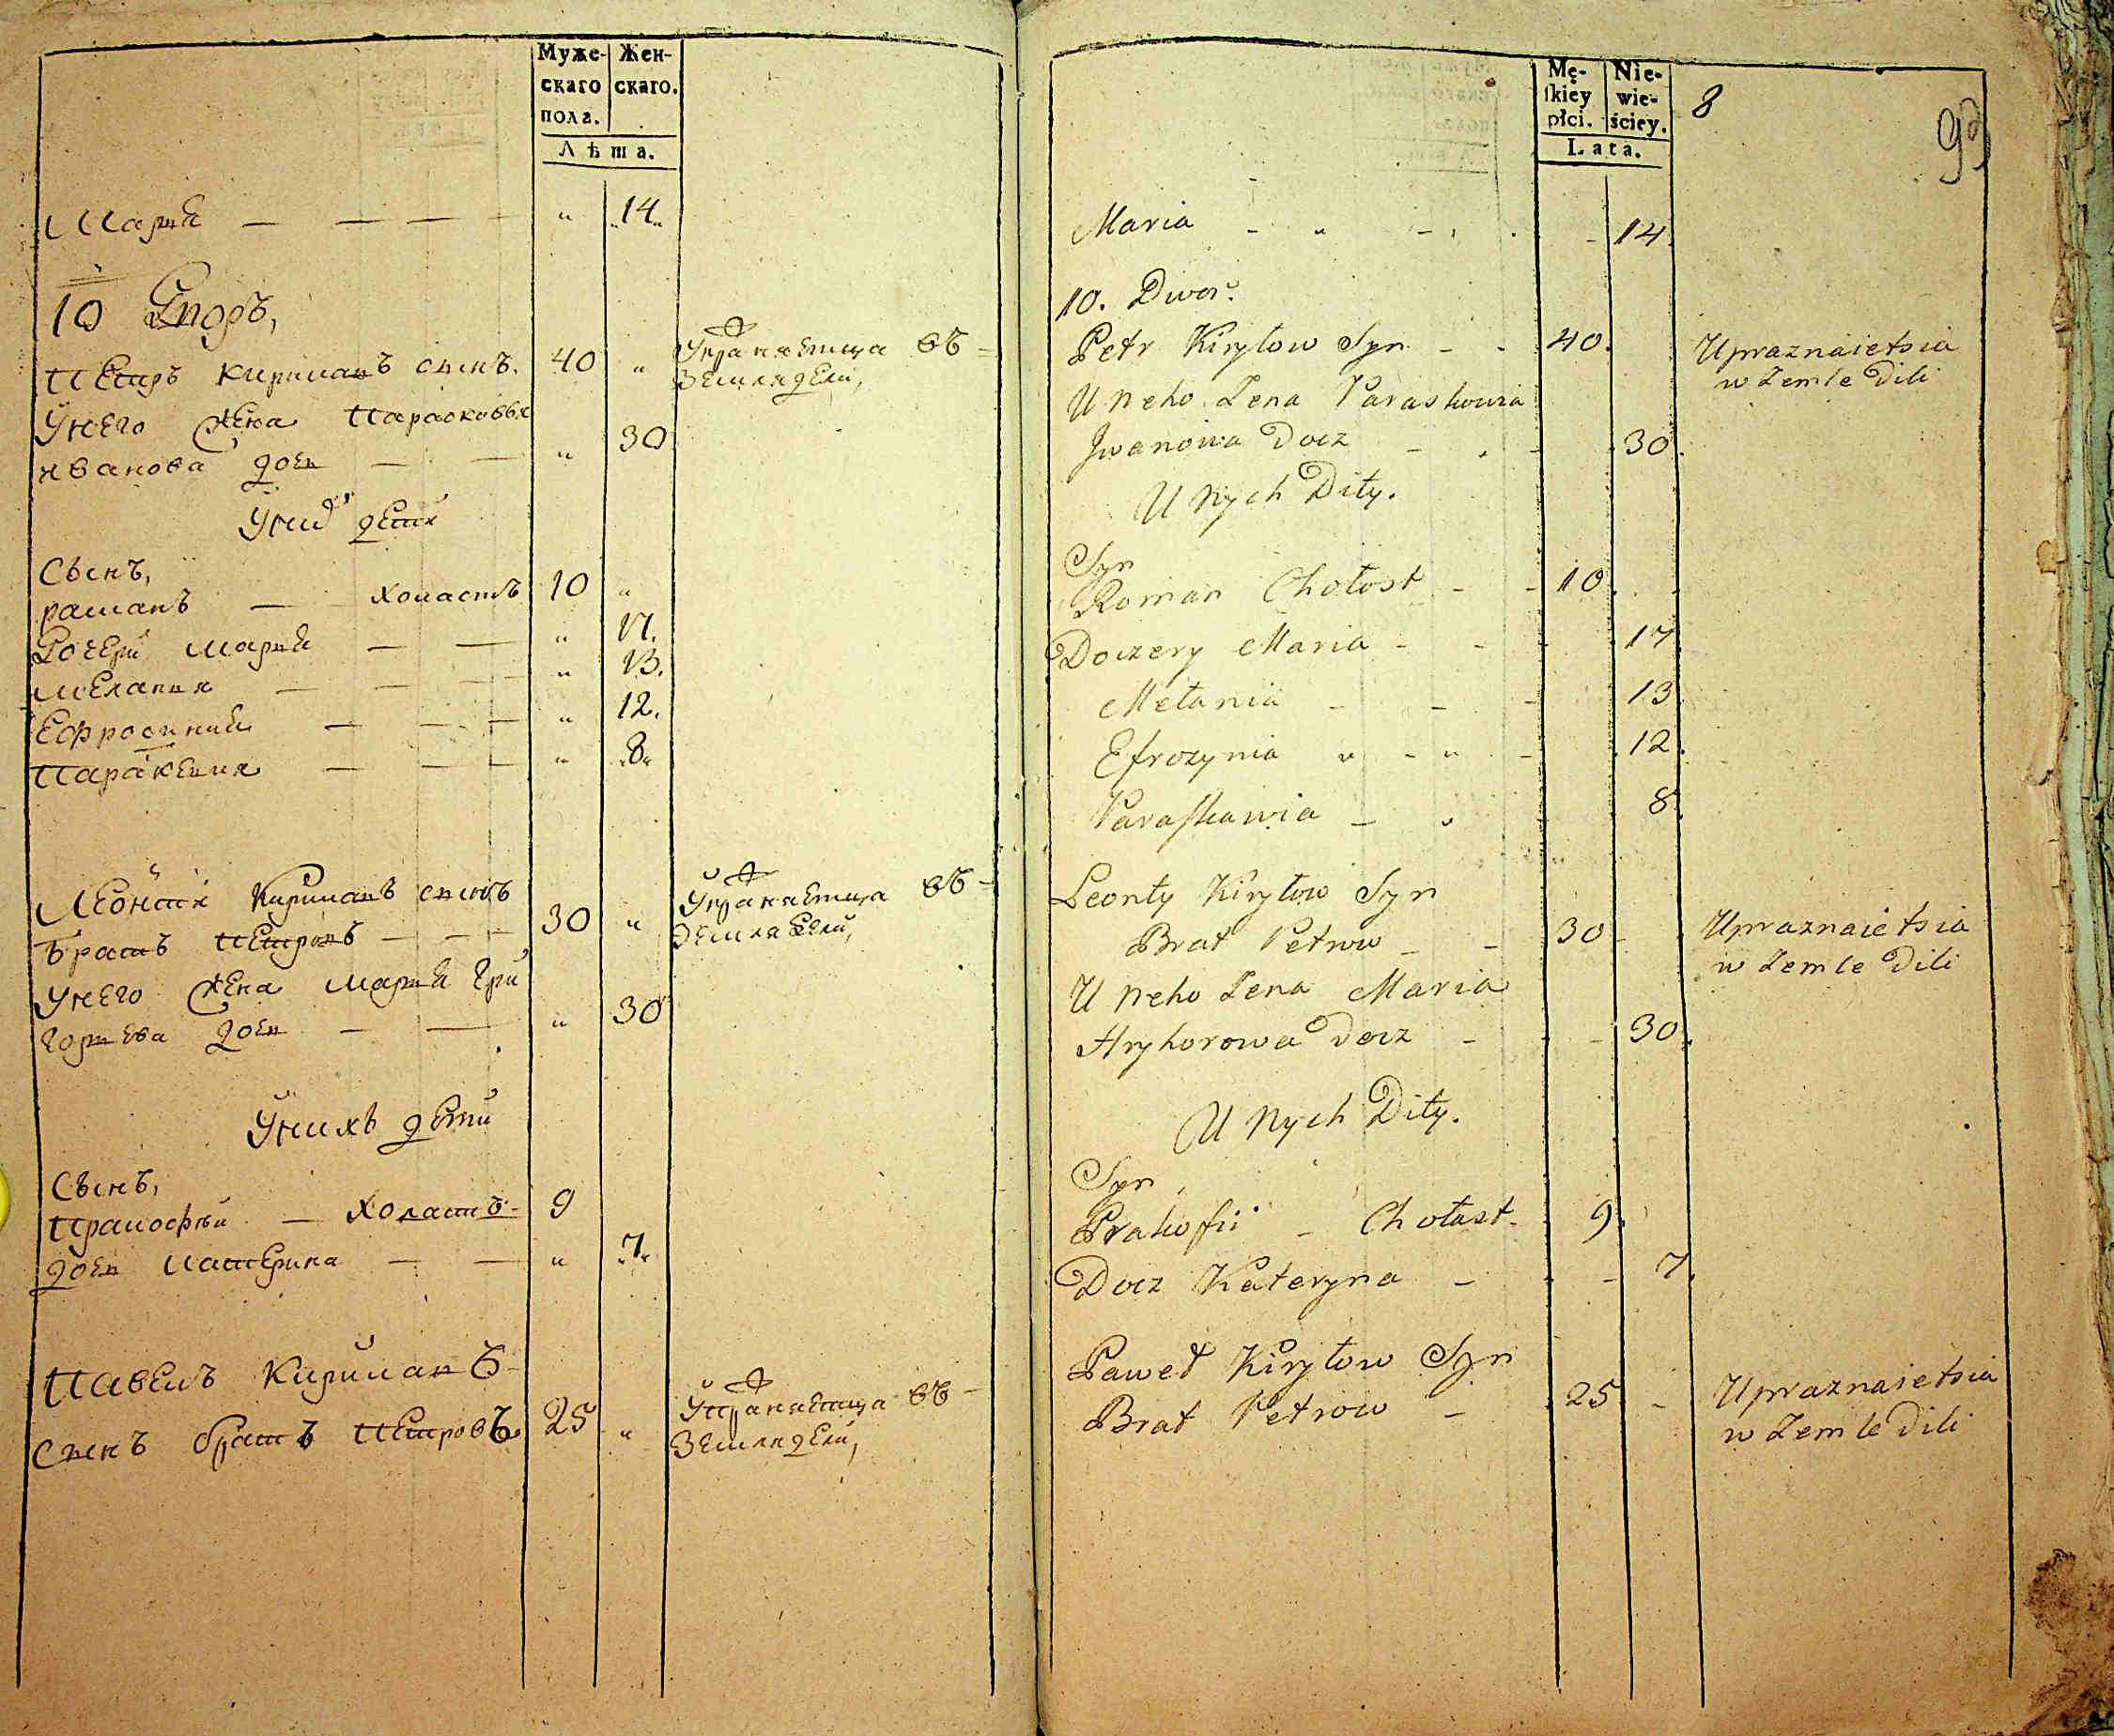 Муже- Жен-
скаго скаго.
пола.
Лѣта.
Мариа — — — — „ 14„
10 Дворъ,
Петръ Кириловъ сынъ. 40 „ Упражняетца въ =
землядели,
Унего Жена Парасковья
ивановa дочь — — „ 30
Уних дети
Сынъ,
раманъ — холастъ 10 „
Дочери Мариа — — „ 17.
Мелания — — — „ 13.
Ефросиниа — — — „ 12.
Параскевия — — — „ 8„
Леонтии Кириловъ сынъ Упражняетца въ =
братъ Петровъ — — — 30 „ землядели,
Унего Жена Мариа Гри
горьева дочь — — „ 30
Унихъ дети
Сынъ,
Пракофий — Холастъ - 9
дочь Катерина — — „ 7„
Павелъ Кириловъ -
сынъ братъ Петровъ 25 „ Упражняетца въ =
землядели,
Mę- Nie-
skiey wie-
płci. ściey.
Lata.
8
93
Maria - „ - . . - 14.
10. Dwor.
Petr Kiryłow Syn - - 40. Upraznaietsia
w Zemle Dili
U Neho Zena Paraskowia
Jwanowa Docz - . - 30.
U Nych Dity.
Syn
Roman Chołost - - 10.
Doczery Maria - - - 17
Mełania - - - 13
Efrozynia „ - „ - 12.
Paraskawia - „ 8.
Leonty Kiryłow Syn
Brat Petrow - - 30 - Upraznaietsia
w Zemle Dili
U Neho Zena Maria
Hryhorowa Docz - - - 30.
U Nych Dity.
Syn
Prakoffii - Chołast - 9.
Docz Kateryna - - - 7.
Paweł Kiryłow Syn
Brat Petrow - 25 - Upraznaietsia
w Zemle Dili